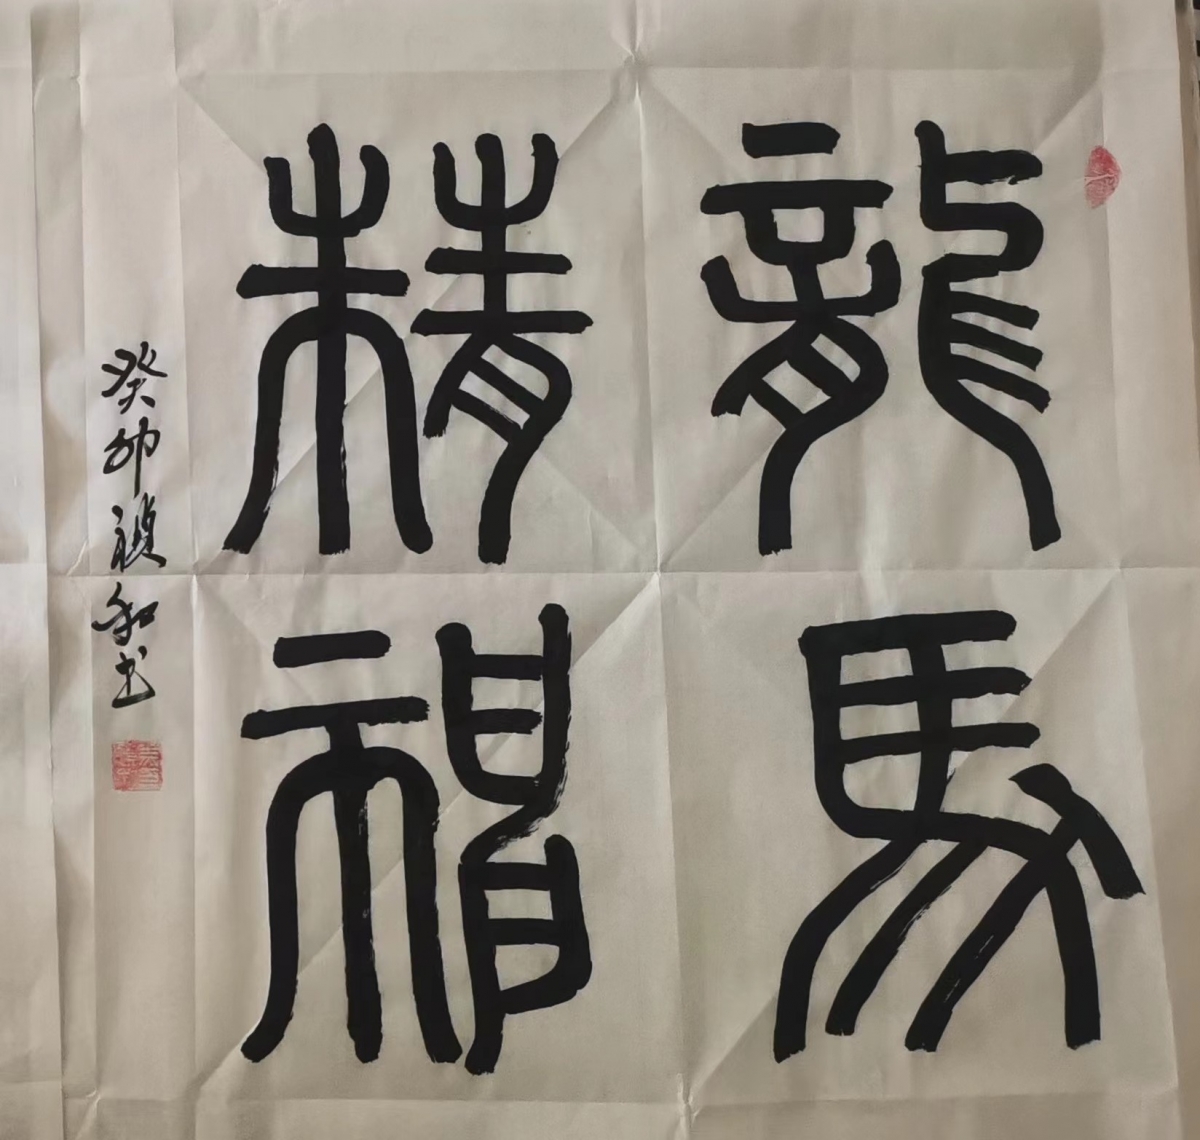 龍馬
精神
癸卯禎和书